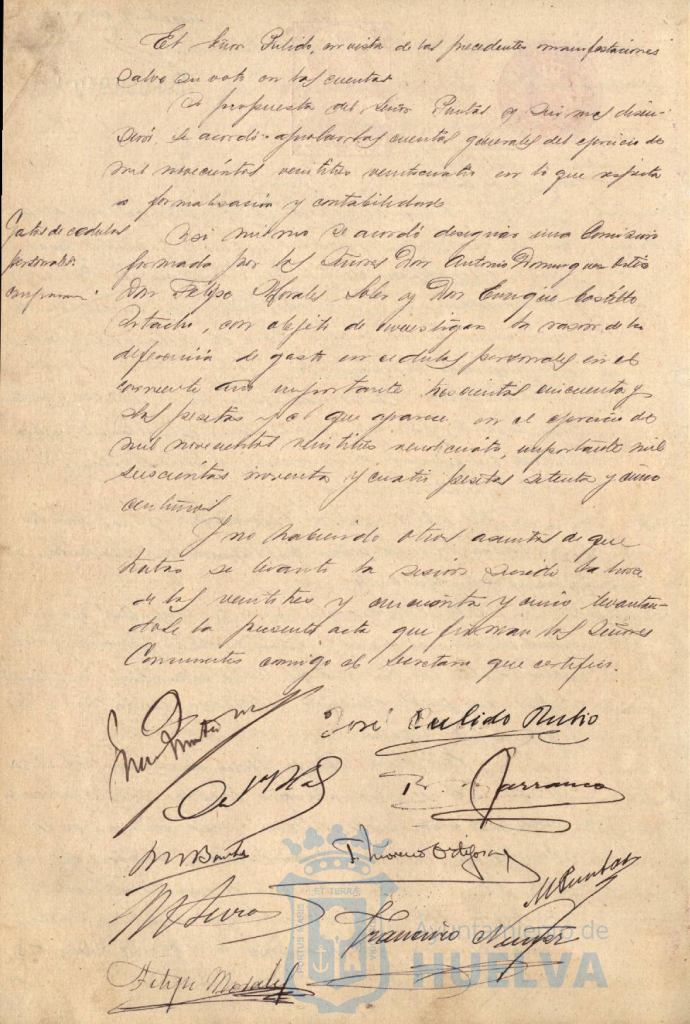 El Señor Pulido, en vista de las precedentes manifestaciones
salva su voto en las cuentas
A propuesta del Señor Puntas y sin mas discu-
sión, se acordó aprobar las cuentas generales del ejercicio de
mil novecientos veintitres veinticuatro en lo que respecta
a formalización y contabilidad
Gastos de cedulas
personales
Asi mismo se acordó designar una Comision
formada por los Señores Don Antonio Dominguez
Don Felipe Morales Soler y Don Enrique Castillo
con objeto de investigar la razon de la
diferencia de gasto en cedulas personales en el
corriente año importante trescientas cincuenta y
pesetas y el que aparece en el ejercicio de
mil novecientos veintitres veinticuatro, importante mil
seiscientas noventa y cuatro pesetas setenta y cinco
centimos
Y no habiendo otros asuntos de que
tratar se levantó la sesion siendo la hora
de las veintitres y cincuenta y cinco levantan-
dose la presente acta que firman los Señores
Concurrentes conmigo el Secretario que certifico.
José Pulido Rubio
Garranco
M Puntas
Francisco
Felipe Morales
PORTUS MARIS ET TERRÆ
Ayuntamiento de
HUELVA